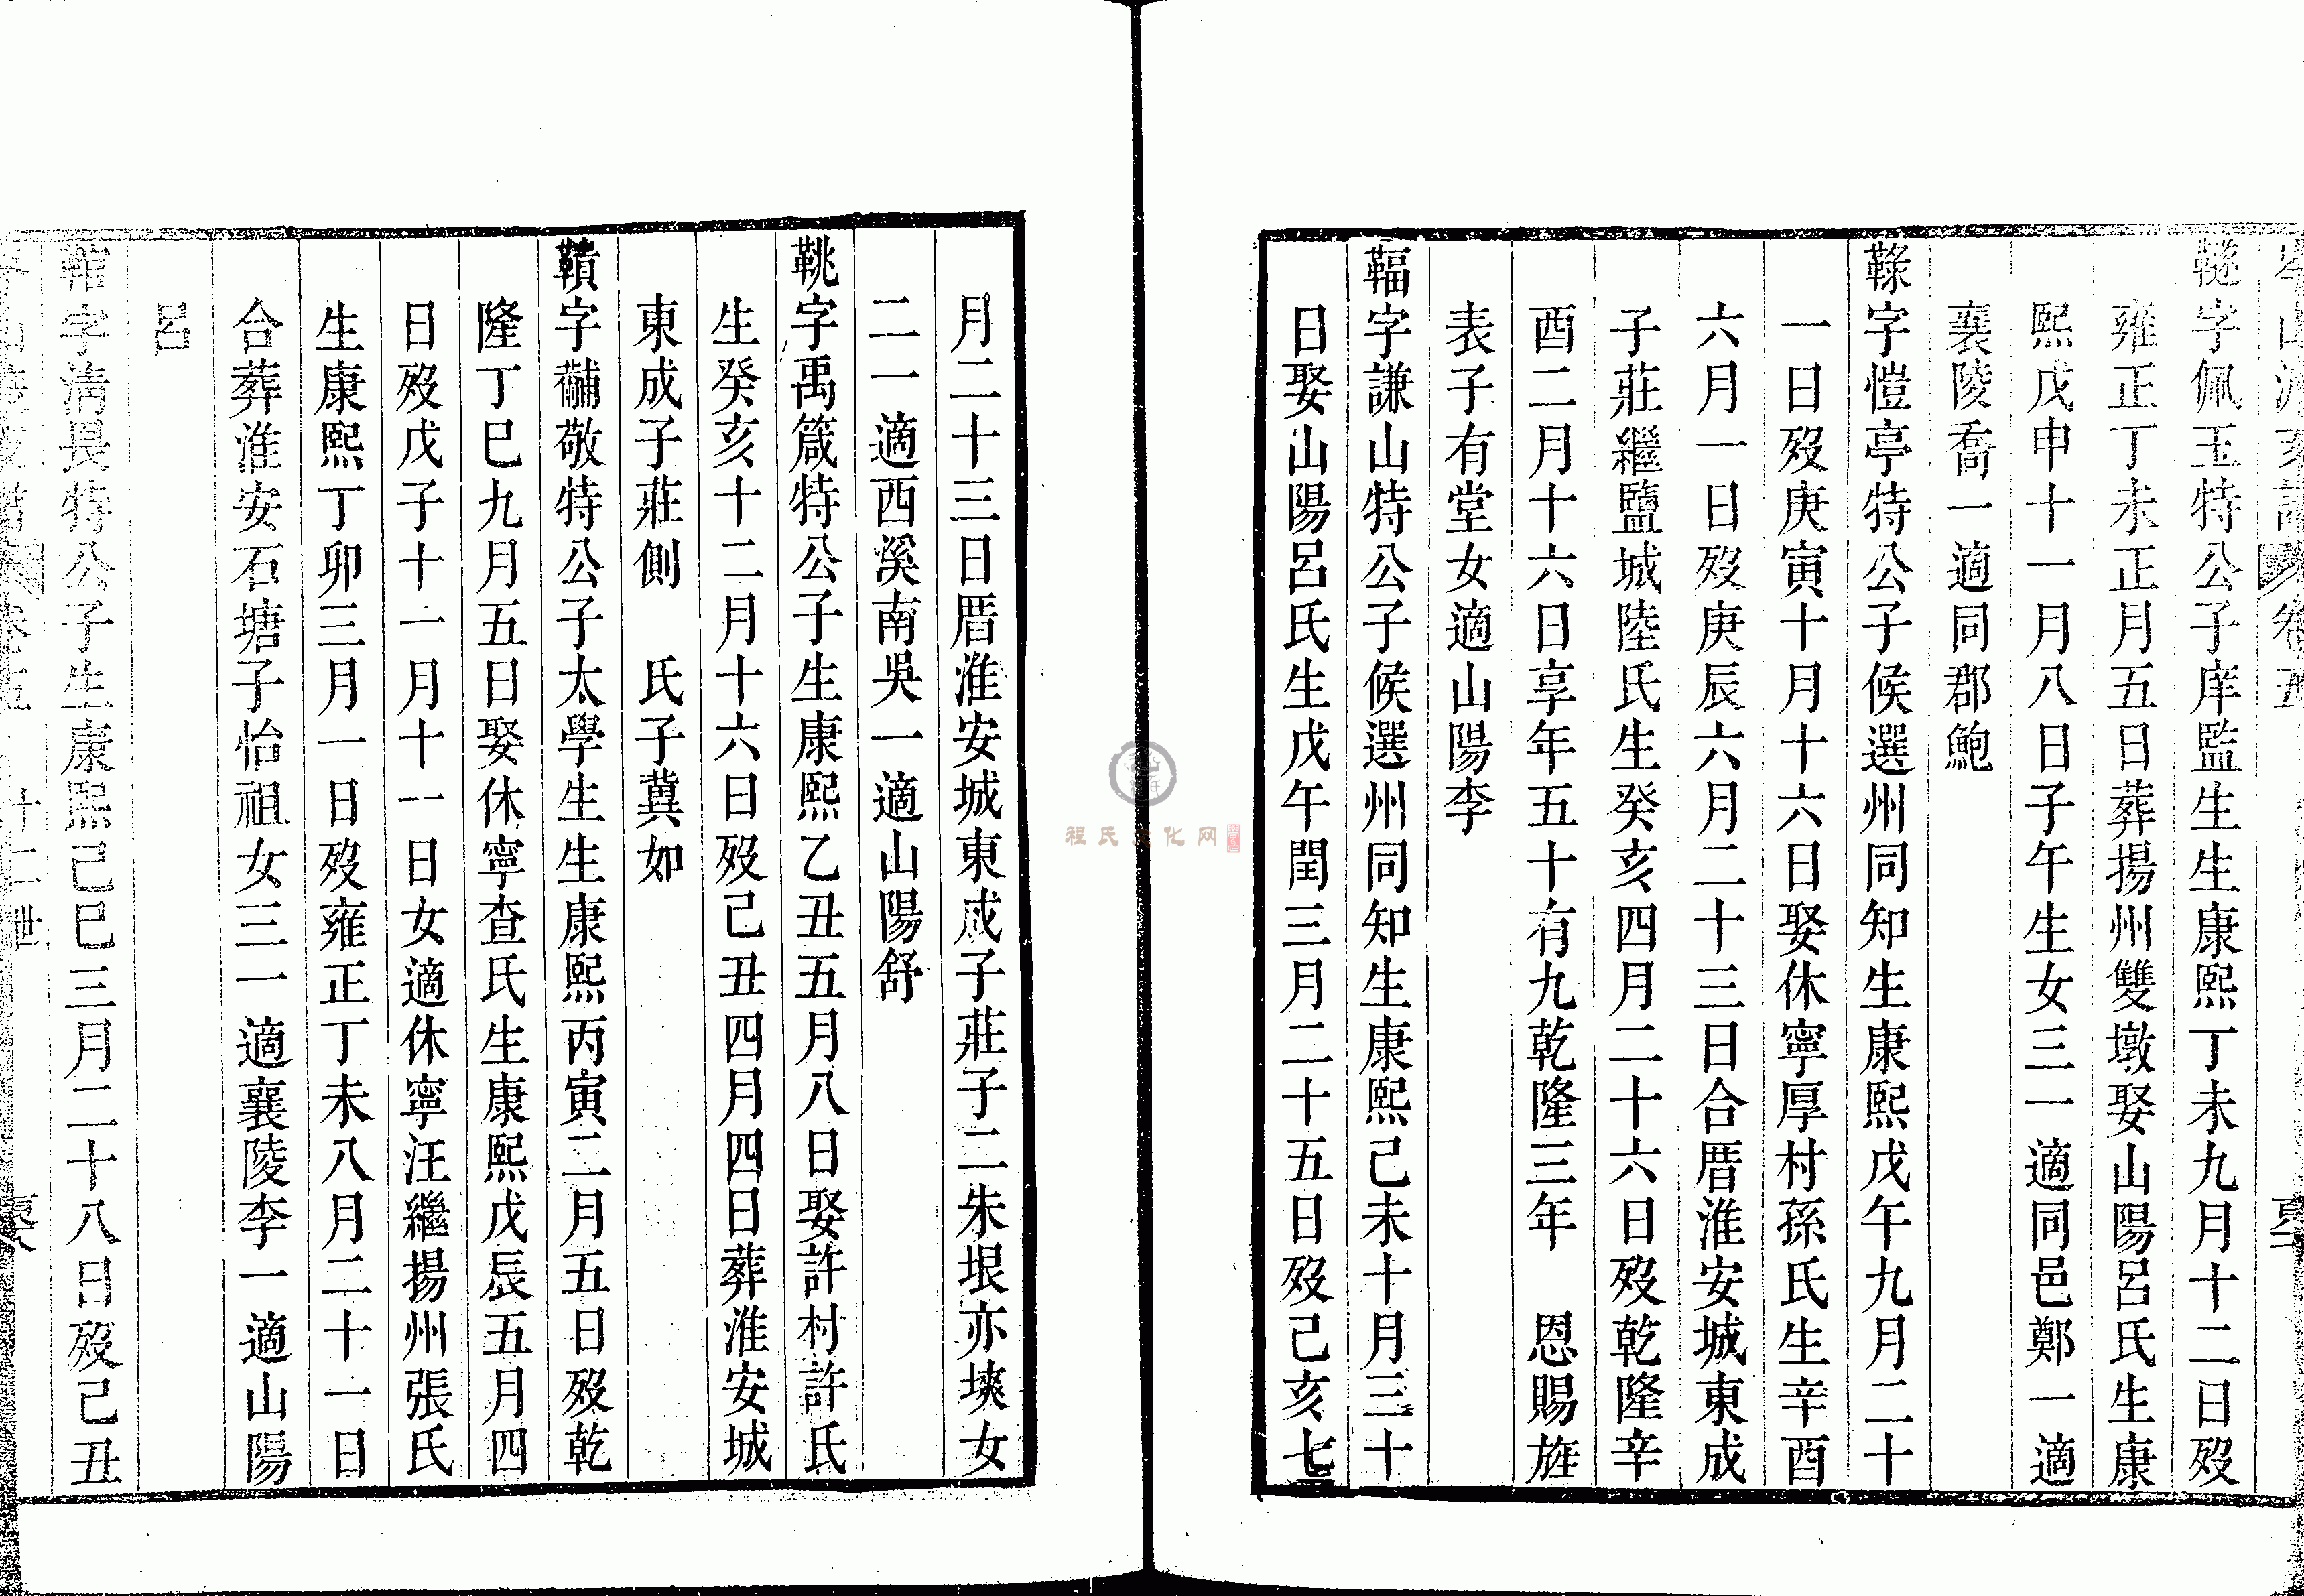 岑山渡支譜 卷五
韢字佩玉特公子庠監生生康熙丁未九月十二日歿
雍正丁未正月五日葬揚州雙墩娶山陽呂氏生康
熙戊申十一月八日子午生女三一適同邑鄭一適
襄陵喬一適同郡鮑
字愷亭特公子候選州同知生康熙戊午九月二十
一日歿庚寅十月十六日娶休寧厚村孫氏生辛酉
六月一日歿庚辰六月二十三日合厝淮安城東成
子莊繼鹽城陸氏生癸亥四月二十六日歿乾隆辛
酉二月十六日享年五十有九乾隆三年 恩賜旌
表子有堂女適山陽李
字謙山特公子候選州同知生康熙己未十月三十
日娶山陽呂氏生戊午閏三月二十五日歿己亥七
月二十三日厝淮安城東成子莊子二朱垠亦堧女
二一適西溪南吳一適山陽舒
鞉字禹箴特公子生康熙乙丑五月八日娶許村許氏
生癸亥十二月十六日歿己丑四月四日葬淮安城
東成子莊側 氏子冀如
字黼敬特公子太學生生康熙丙寅二月五日歿乾
隆丁巳九月五日娶休寧查氏生康熙戊辰五月四
日歿戊子十一月十一日女適休寧汪繼揚州張氏
生康熙丁卯三月一日歿雍正丁未八月二十一日
合葬淮安石塘子怡祖女三一適襄陵李一適山陽
呂
字淸畏特公子生康熙己巳三月二十八日歿己丑
卷五 十二世
程氏文化网